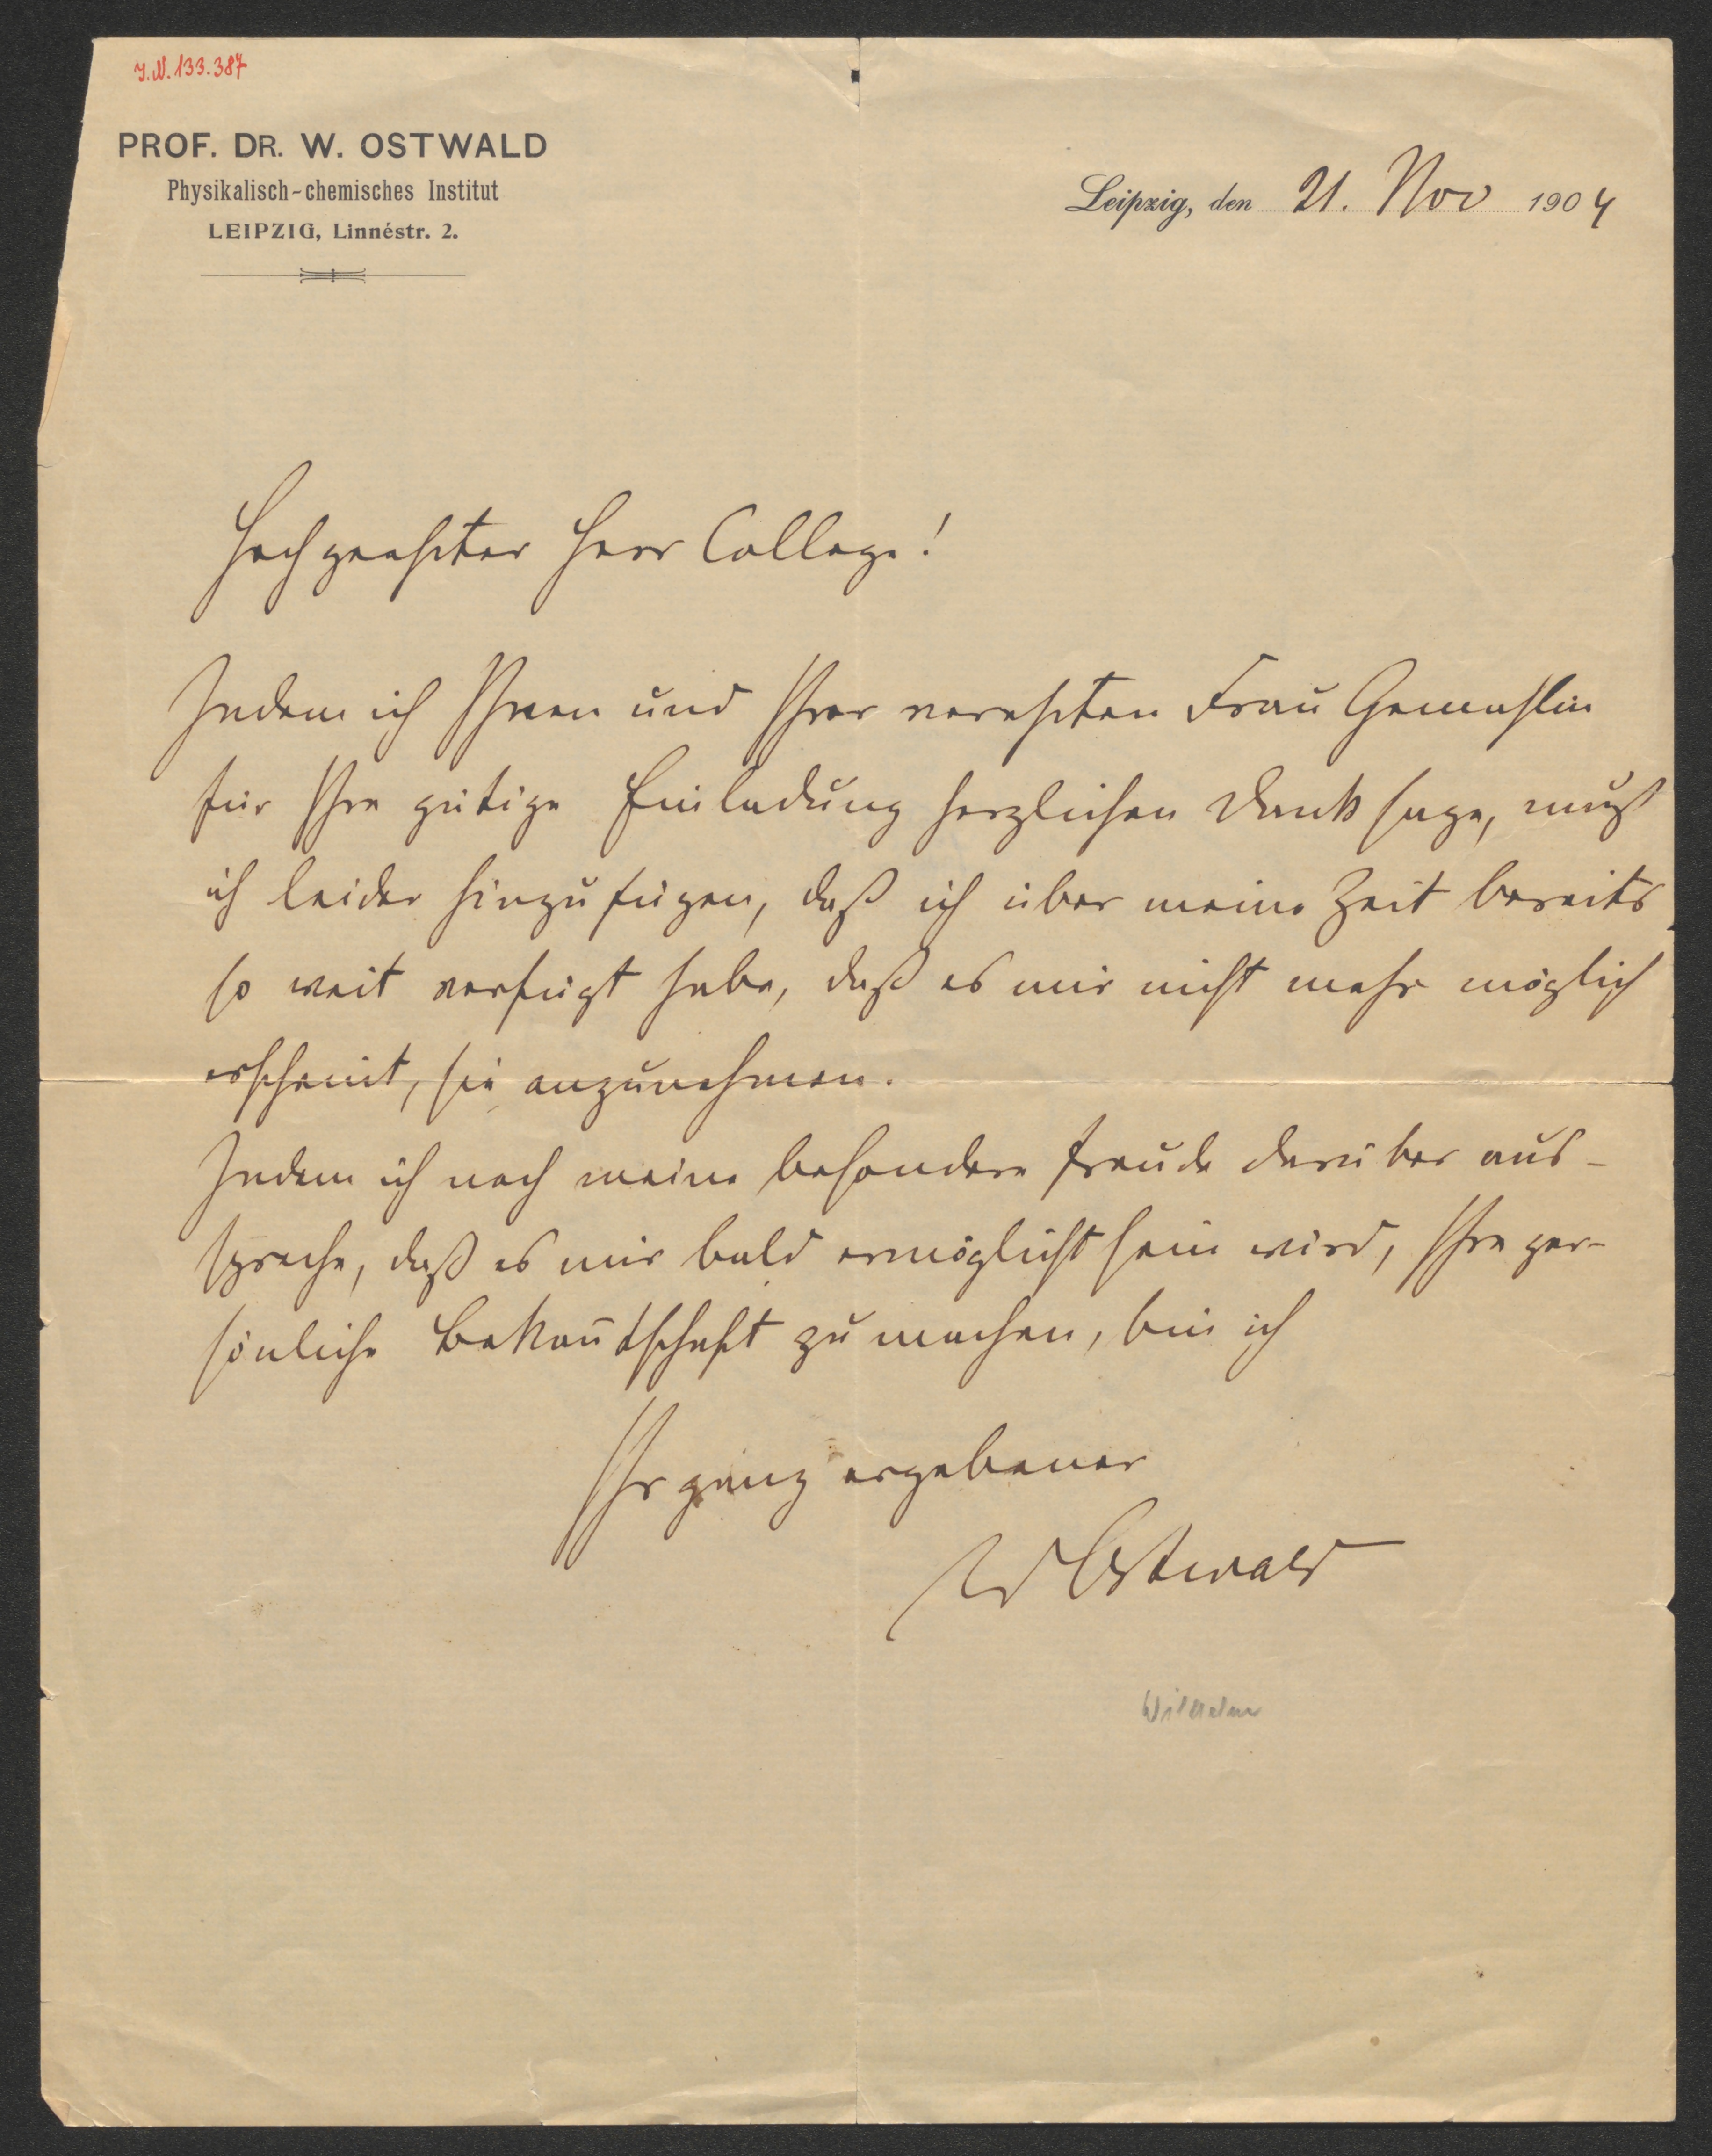 I.N. 133.387
PROF. DR. W. OSTWALD
Physikalisch-chemisches Institut
LEIPZIG, Linnéstr. 2.
Leipzig, den 21. Nov 1904
Hochgeehrter Herr College!
Indem ich Ihnen und Ihrer verehrten Frau Gemahlin
für Ihre gütige Einladung herzlichen Dank sage, muß
ich leider hinzufügen, daß ich über meine Zeit bereits
so weit verfügt habe, daß es mir nicht mehr möglich
erscheint, sie anzunehmen.
Indem ich noch meine besondere Freude darüber aus-
spreche, daß es mir bald ermöglicht sein wird, Ihre per-
sönliche Bekan̄tschaft zu machen, bin ich
Ihr ganz ergebener
W Ostwald
Wilhelm